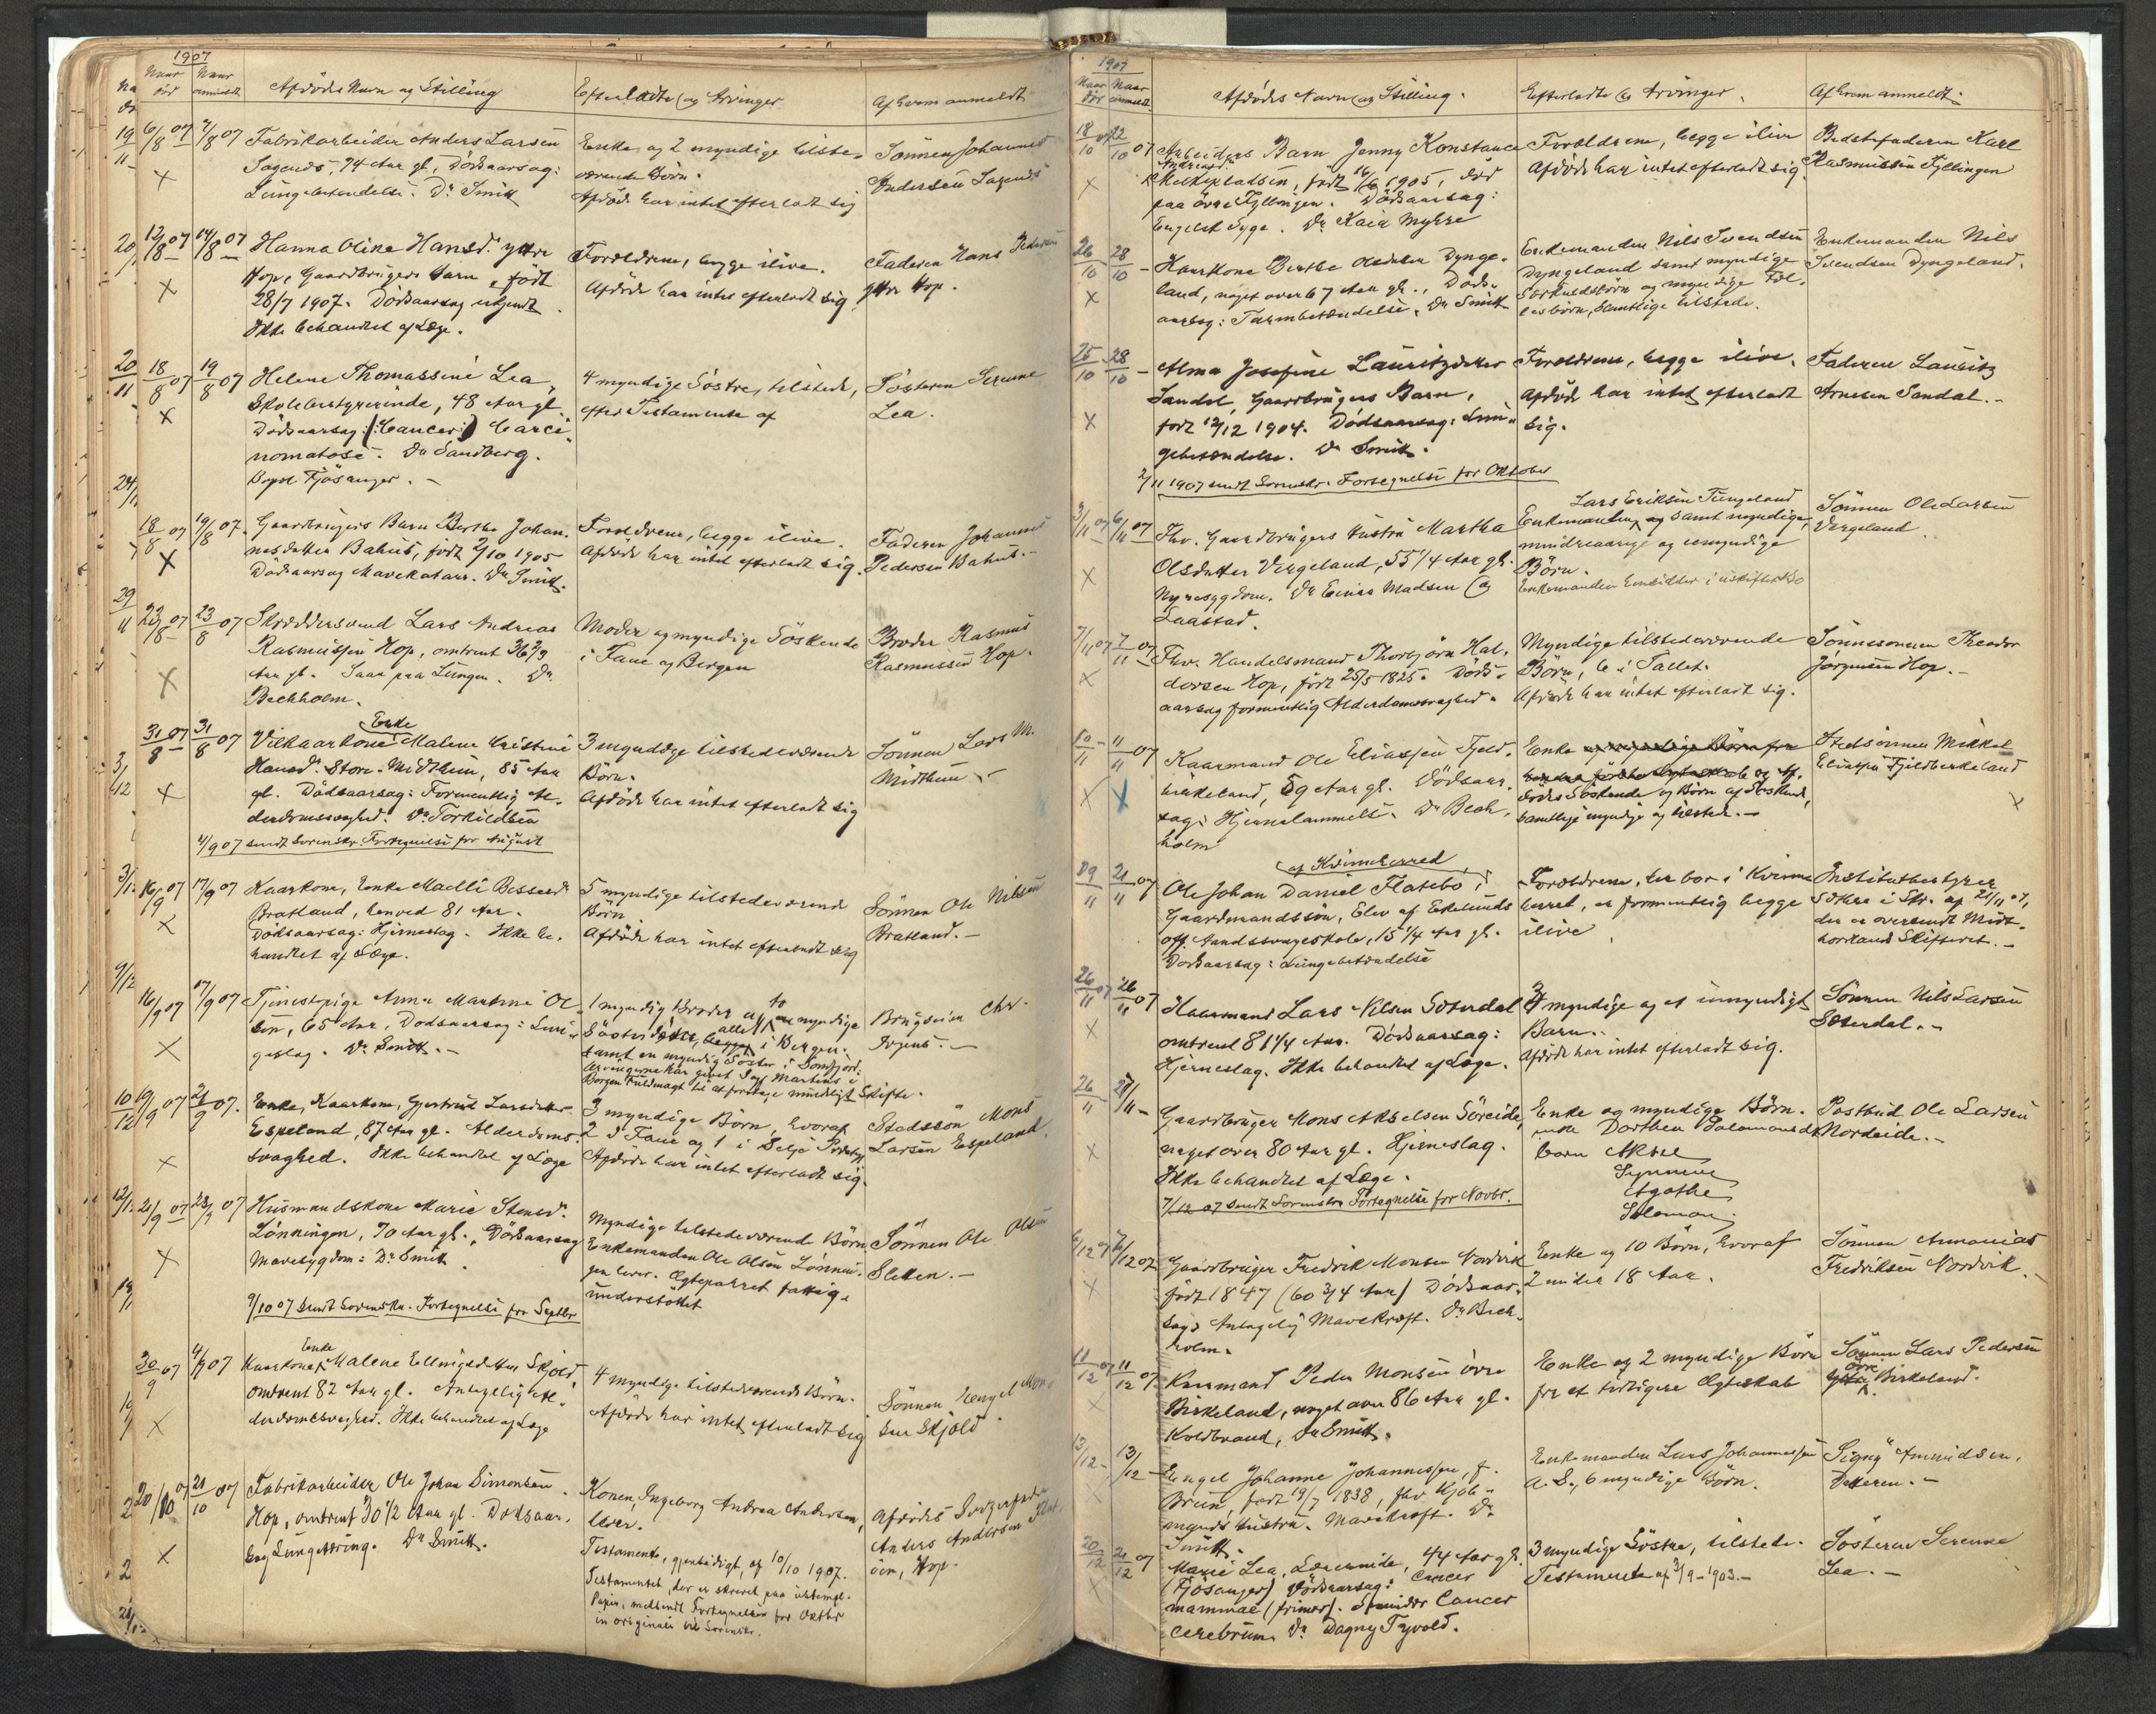 1907
Naar død
Naar anmeldt
Afdødes Navn og Stilling
Efterladte og Arvinger
Af hvem anmeldt
6/8 07 7/8 07 Fabrikarbeider Anders Larsen
Sagende, 74 Aar gl, Dødsaarsag:
Lungebetændelse. Dr Smitt
Enke og 2 myndige tilste-
værende Børn.
Afdøde har intet efterladt sig
Sønnen Johannes
Andersen Sagende
12/8 07 14/8 07 Hanna Oline Hansd. ytre
Hop, Gaardbrugers Barn, født
28/7 1907. Dødsaarsag ukjendt
Ikke behandlet af Læge.
Forældrene, begge ilive.
Afdøde har intet efterladt sig
Faderen Hans Pedersen
ytre Hop.
18/8 07 19/8 07 Helene Thomassine Lea,
Skolebestyrerinde, 48 Aar gl.
Dødsaarsag: (Cancer) Carci-
nomatose. Dr Sandberg.
Bopæl Fjøsanger. -
4 myndige Søstre, tilstede,
efter Testamente af
Søsteren Serene
Lea.
18/8 07 19/8 07. Gaardbrugers Barn Berthe Johan-
nesdatter Bahus, født 2/10 1905
Dødsaarsag Mavekatarr. Dr Smitt.
Forældrene, begge ilive.
Afdøde har intet efterladt sig.
Faderen Johannes
Pedersen Bahus. -
23/8 07 23/8 07 Skræddersvend Lars Andreas
Rasmussen Hop, omtrent 36
Aar gl. Saar paa Lungen. Dr
Bechholm.
Moder og myndige Søskende
i Fane og Bergen
Broder Rasmus
Rasmussen Hop.
31/8 07 31/8 07 Enke
Vilkaarkone Malene Kristine
Hansd. Store-Midthun, 85 Aar
gl. Dødsaarsag: Formentlig Al-
derdomssvaghed. Dr Torkildsen
3 myndige tilstedeværende
Børn.
Afdøde har intet efterladt sig
Sønnen Lars M.
Midthun
4/9 07 sendt Sorenskr. Fortegnelse for August
16/9 07 17/9 07 Kaarkone, Enke Maelli Bessesdr
Bratland, henved 81 Aar.
Dødsaarsag: Hjerneslag. Ikke be-
handlet af Læge.
5 myndige tilstedeværende
Børn
Afdøde har intet efterladt sig
Sønnen Ole Nilsen
Bratland. -
16/9 07 17/9 07 Tjenestepige Anna Martine Ol-
sen, 65 Aar, Dødsaarsag: Lun-
geslag. Dr Smitt. -
1 myndig Broder og to myndige
Søstre, alle i Bergen.
samt en myndig Søster i Søndfjord.
Arvingerne har givet Martens i
Bergen Fuldmagt til at foretage mindeligt Skifte.
Chr.
19/9 07 21/9 07. Enke, Kaarkone, Gjertrud Larsdatter
Espeland, 87 Aar gl. Alderdoms-
svaghed. Ikke behandlet af Læge
3 myndige Børn, hvoraf
2 i Fane og 1 i Selje Præstegj.
Afdøde har intet efterladt sig.
Stedssøn Mons
Larsen Espeland.
21/9 07 23/9 07 Husmandskone Marie Stensd.
Lønningen, 70 Aar gl., Dødsaarsag
Mavesygdom: Dr Smitt
Myndige tilstedeværende Børn
Enkemanden Ole Olsen Lønnin-
gen lever. Ægteparret fattig-
understøttet
Sønnen Ole Olsen
Sletten. -
9/10 07 sendt Sorenskr. Fortegnelse for Septbr
30/9 07 07 Enke
Kaarkone Malene Ellingsdatter Skjold,
omtrent 82 Aar gl. Antagelig Al-
derdomssvaghed. Ikke behandlet af Læge
4 myndige tilstedeværende Børn.
Afdøde har intet efterladt sig
Sønnen Engel Mon-
sen Skjold
20/10 07 21/10 07 Fabrikarbeider Ole Johan Simonsen
Hop, omtrent 30 1/2 Aar gl. Dødsaar-
sag Lungetæring. Dr Smitt.
Konen, Ingeborg Andrea Andersen,
lever.
Testamente, gjensidigt, af 10/10 1907.
Testamentet, der er skrevet paa ustempl.
Papir, medsendt Fortegnelsen for Oktbr
in originali til Sorenskr.
Afdødes Svigerfader
Anders Andersen
øen, Hop.
1907
Naar død
Naar anmeldt
Afdødes Navn og Stilling.
Efterladte og Arvinger.
Af hvem anmeldt.
18/10 07 22/10 07 Arbeiders Barn Jenny Konstance
Andreasd.
Melkepladsen, født 16/6 1905, død
paa øvre Fyllingen. Dødsaarsag:
Engelsk Syge. Dr Kaia Myhre
Forældrene, begge ilive
Afdøde har intet efterladt sig.
Bedstefaderen Karl
Rasmussen Fyllingen
26/10 28/10 - Kaarkone Berthe Olsdatter Dynge-
land, noget over 67 Aar gl., Døds-
aarsag: Tarmbetændelse, Dr Smitt
Enkemanden Nils Svendsen
Dyngeland samt myndige
Særkuldsbørn og myndige Fæl-
lesbørn, samtlige tilstede.
Enkemanden Nils
Svendsen Dyngeland.
25/10 28/10 - Alma Josefine Lauritzdatter
Sandal, Gaardbrugers Barn,
født 12/12 1904. Dødsaarsag: Lun-
gebetændelse. Dr Smitt.
Forældrene, begge ilive.
Afdøde har intet efterladt
sig.
Faderen Lauritz
Arnesen Sandal. -
2/11 1907 sendt Sorenskr. Fortegnelse for Oktober
3/11 07 6/11 07 Fhv. Gaardbrugers Hustru Martha
Olsdatter Vergeland, 55 1/4 Aar gl.
Nyresygdom. Dr Einar Madsen og
Laastad.
Lars Eriksen Tungeland
Enkemanden og samt myndige
mindreaarige og umyndige
Børn.
Enkemanden hensidder i uskiftet Bo
Sønnen Ole Larsen
Vergeland.
7/11 07 7/11 07 Fhv. Handelsmand Thorbjørn Hal-
dorsen Hop, født 25/5 1825. Døds-
aarsag formentlig Alderdomssvaghed.
Myndige tilstedeværende
Børn, 6 i Tallet.
Afdøde har intet efterladt sig.
Sønnesønnen Theodor
Jørgensen Hop. -
10/11 - 11/11 07 Kaarmand Ole Eliassen Fjeld-
birkeland, 59 Aar gl. Dødsaar-
sag: Hjernelammelse. Dr Bech-
holm
Enke og myndige Børn fra
og Af-
dødes Søskende og Børn af Søskende,
samtlige myndige og tilstede. -
Stedsønnen Mikkel
Eliassen Fjeldbirkeland
19/11 21/11 07 af Kvinneherred
Ole Johan Daniel Flatebø i
Gaardmandssøn, Elev af Eekelunds
off. Aandssvageskole, 15 1/4 Aar gl.
Dødsaarsag: Lungebetændelse
Forældrene, der bor i Kvinne-
herret, er formentlig begge
ilive
Institutbestyrer
i Skr. af 21/11 07,
der er oversendt Midt-
hordlands Skifteret. -
26/11 07 26/11 07 Kaarmand Lars Nilsen Sæterdal
omtrent 81 1/4 Aar. Dødsaarsag:
Hjerneslag. Ikke behandlet af Læge.
myndige og et umyndigt
Barn.
Afdøde har intet efterladt sig.
Sønnen Nils Larsen
Sæterdal. -
26/11 - 27/11 - Gaardbruger Mons Akselsen Søreide,
noget over 80 Aar gl. Hjerneslag.
Ikke behandlet af Læge.
Enke og myndige Børn.
enke Dorthea Salomonsdtr
børn Aksel
Synneve
Agathe
Salomon
Postbud Ole Larsen
Nordeide. -
7/12 07 sendt Sorenskr Fortegnelse for Novbr.
6/12 07 7/12 07 Gaardbruger Fredrik Monsen Nordvik
født 1847 (60 3/4 Aar) Dødsaar-
sag: Antagelig Mavekræft. Dr Bech-
holm.
Enke og 10 Børn, hvoraf
2 under 18 Aar.
Sønnen Ananias
Fredriksen Nordvik.
11/12 07 11/12 07 Kaarmand Peder Monsen øvre
Birkeland, noget over 86 Aar gl.
Koldbrand, Dr Smitt.
Enke og 2 myndige Børn
fra et tidligere Ægteskab
Sønnen Lars Pedersen
øvre
ytre Birkeland.
12/12 - 13/12 - Engel Johanne Johannessen, f.
Bruun, født 19/7 1838, fhv Kjøb-
mands Hustru. Mavekræft. Dr
Smitt.
Enkemanden Lars Johannessen
A. S., 6 myndige Børn.
Signy Amundsen,
Datteren. -
20/12 21/12 07 Marie Lea, Lærerinde, 44 Aar gl.
(Fjøsanger) Dødsaarsag: Cancer
mammae (primær). Cancer
cerebrum. Dr Dagny Tyvold.
3 myndige Søstre, tilstede.
Testamente af 3/9 - 1903. -
Søsteren Serene
Lea. -